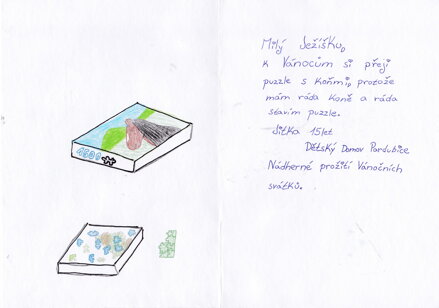 Milý Ježíšku,
k Vánocům si přeji
puzzle s koňmi, protože
mám ráda koně a ráda
stavím puzzle.
Jitka 15let
Dětský Domov Pardubice
Nádherné prožití Vánočních
svátků.
1500